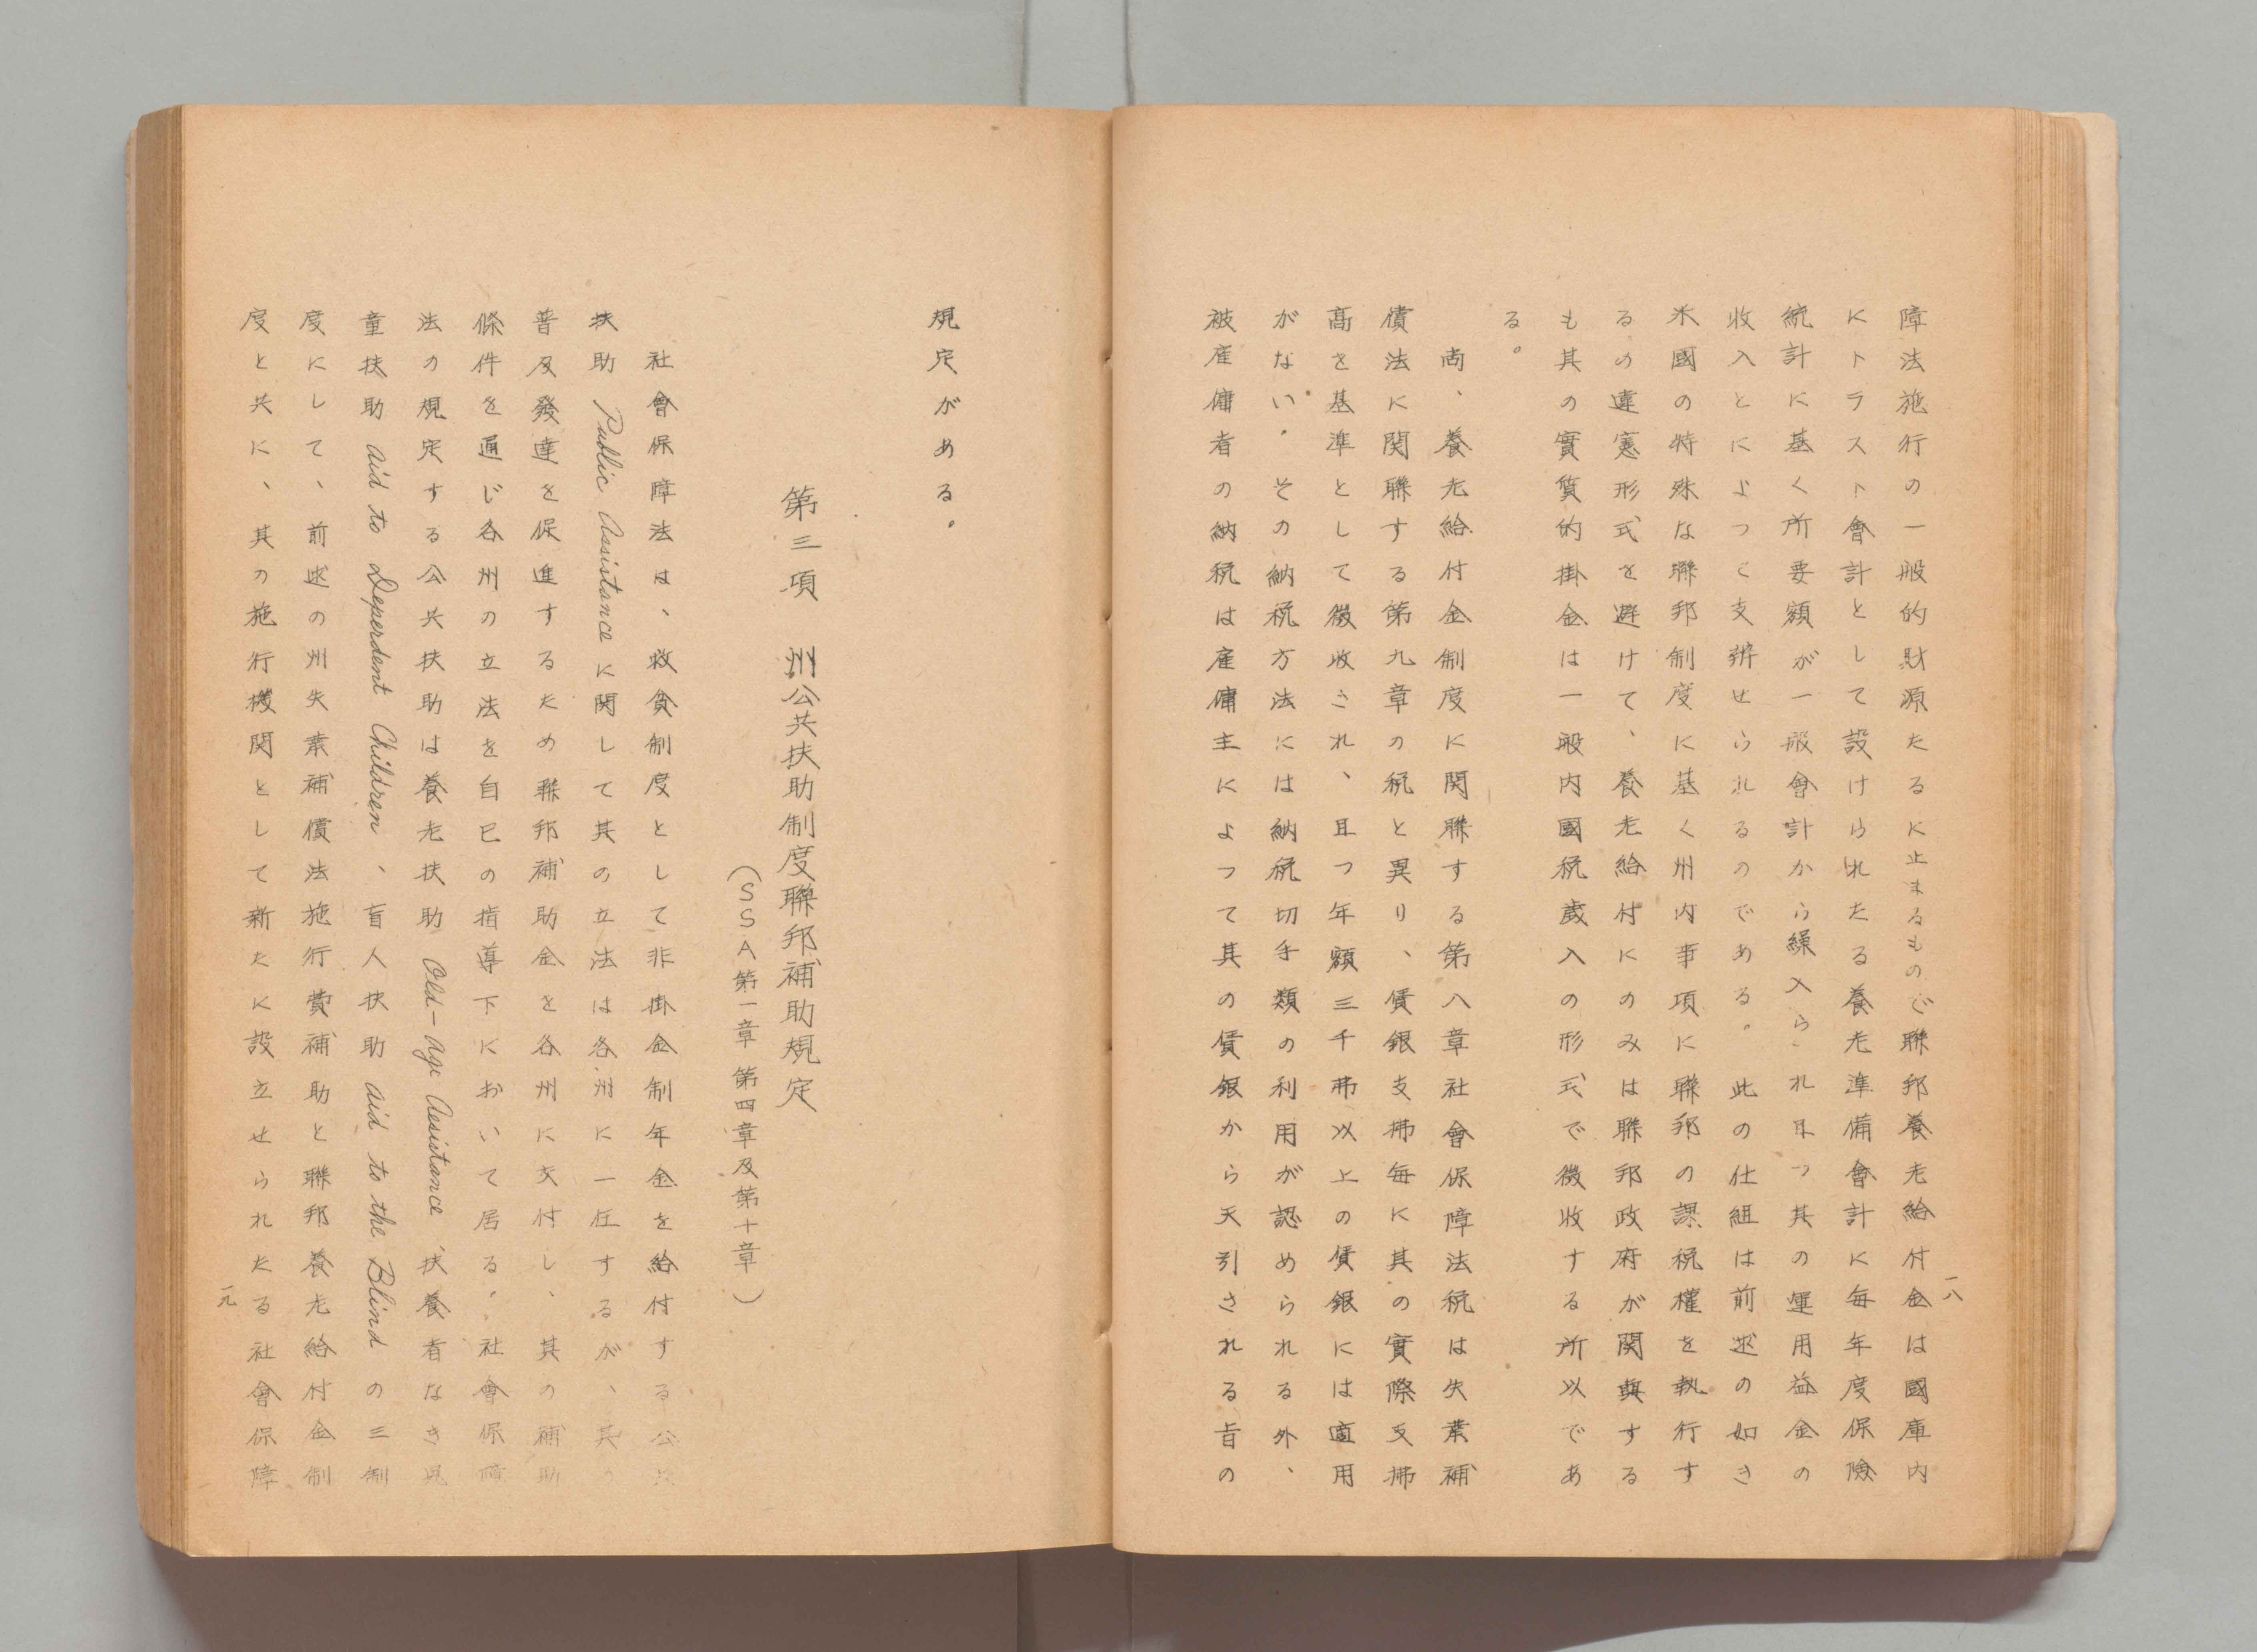 障法施行の一般的財源たるに止まるもので聯邦養老給付金は國庫内
にトラスト會計として設けられたる養老準備會計に每年度保險
統計に基く所要額が一般會計から繰入られ且つ其の運用益金の
收入とによつて支辨せられるのである。此の仕組は前述の如き
米國の特殊な聯邦制度に基く州内事項に聯邦の課税權を執行す
るの違憲形式を避けて、養老給付にのみは聯邦政府が関與する
も其の實質的掛金は一般内國税歲入の形式で徴收する所以であ
る。
尚、養老給付金制度に関聯する第八章社會保障法税は失業補
償法に関聯する第九章の税と異り、賃銀支拂每に其の實際支拂
高を基準として徴收され、且つ年額三千弗以上の賃銀には適用
がない。その納税方法には納税切手類の利用が認められる外、
被雇傭者の納税は雇傭主によつて其の賃銀から天引される旨の
一八
規定がある。
第三項 州公共扶助制度聯邦補助規定
(SSA第一章 第四章及第十章)
社會保障法は、救貧制度として非掛金制年金を給付する公共
扶助 Public Assistance に関して其の立法は各州に一任するが、其の
普及發達を保進するため聯邦補助金を各州に交付し、其の補助
條件を通じ各州の立法を自己の指導下において居る。社會保障
法の規定する公共扶助は養老扶助 Old-age Assistance、扶養者なき兒
童扶助 aid to Dependent Children、盲人扶助 aid to the Blind の三制
度にして、前述の州失業補償法施行費補助と聯邦養老給付金制
度と共に、其の施行機関として新たに設立せられたる社會保障
一九